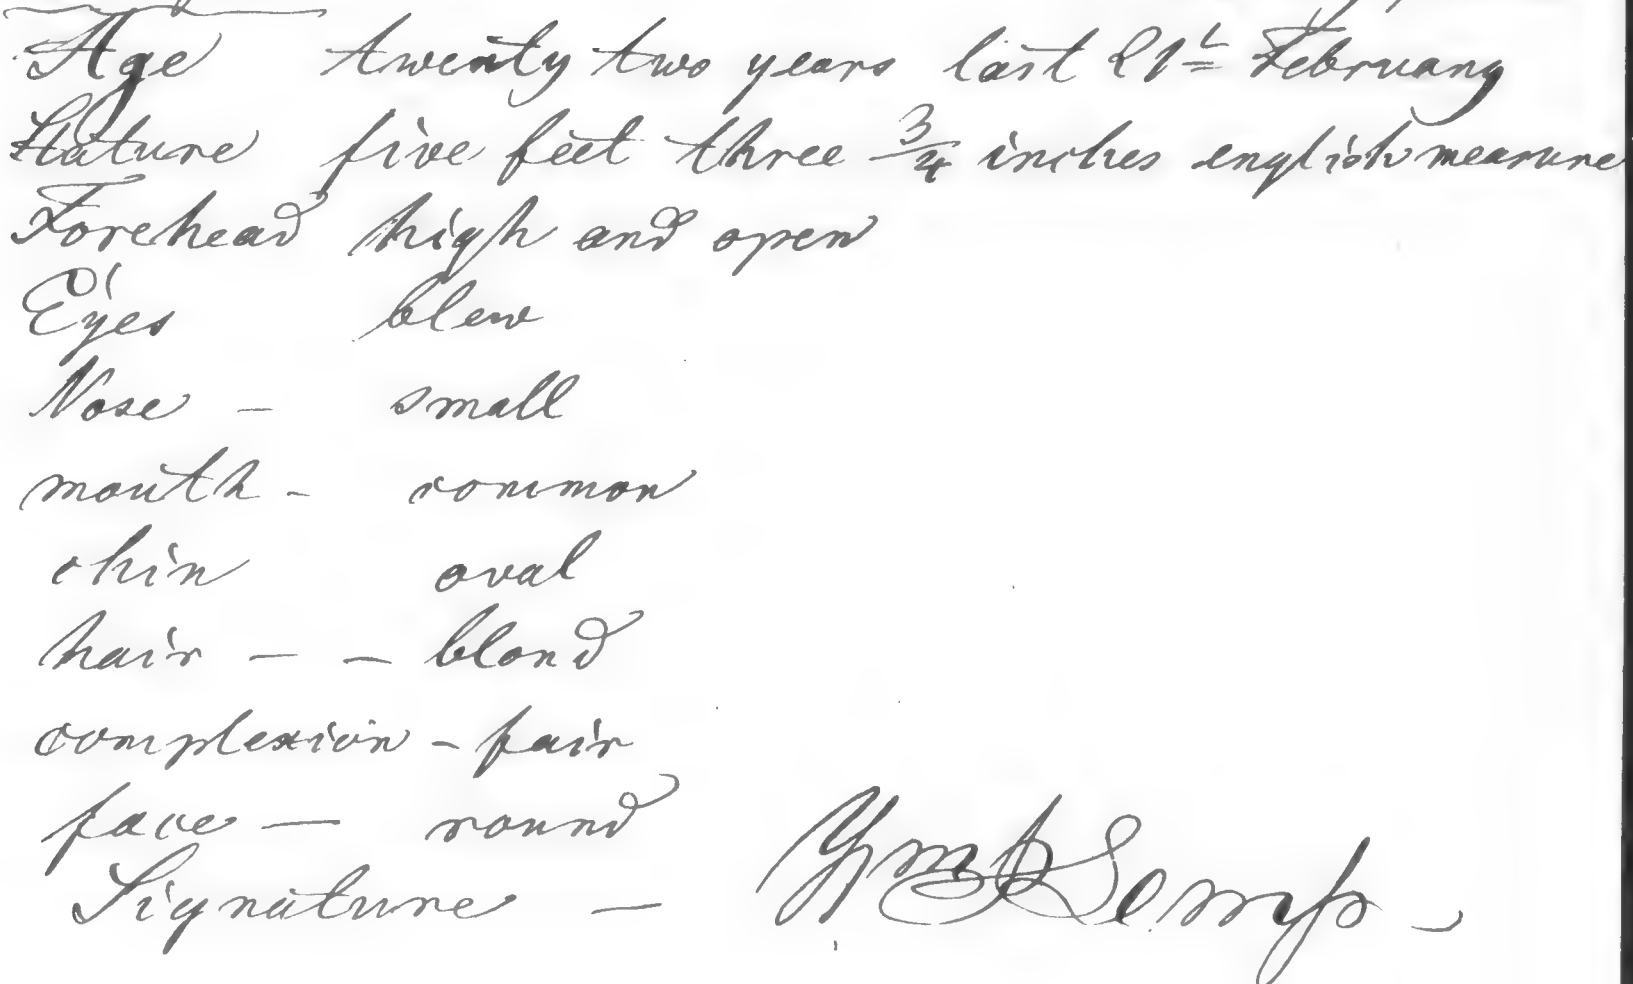 Age twenty two years last 21st February
Stature five feet three 3/4 inches english measure
Forehead high and open
Eyes blew
Nose - small
mouth - common
chin oval
hair - - blond
complexion - fair
face - round
Signature - Wm J Lemp -